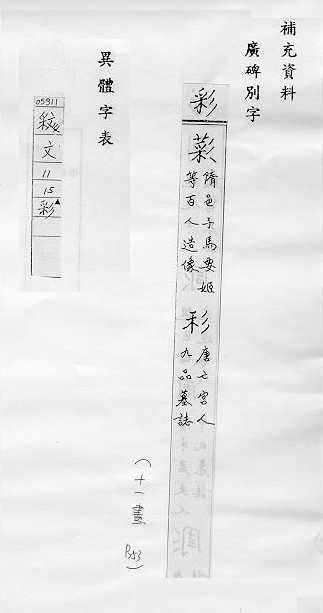 補充資料
廣碑別字
彩
隋邑子馬要姬
等百人造像
唐亡宮人
九品墓誌
(十一畫 P53)
異體字表
05311
文
11
15
彩